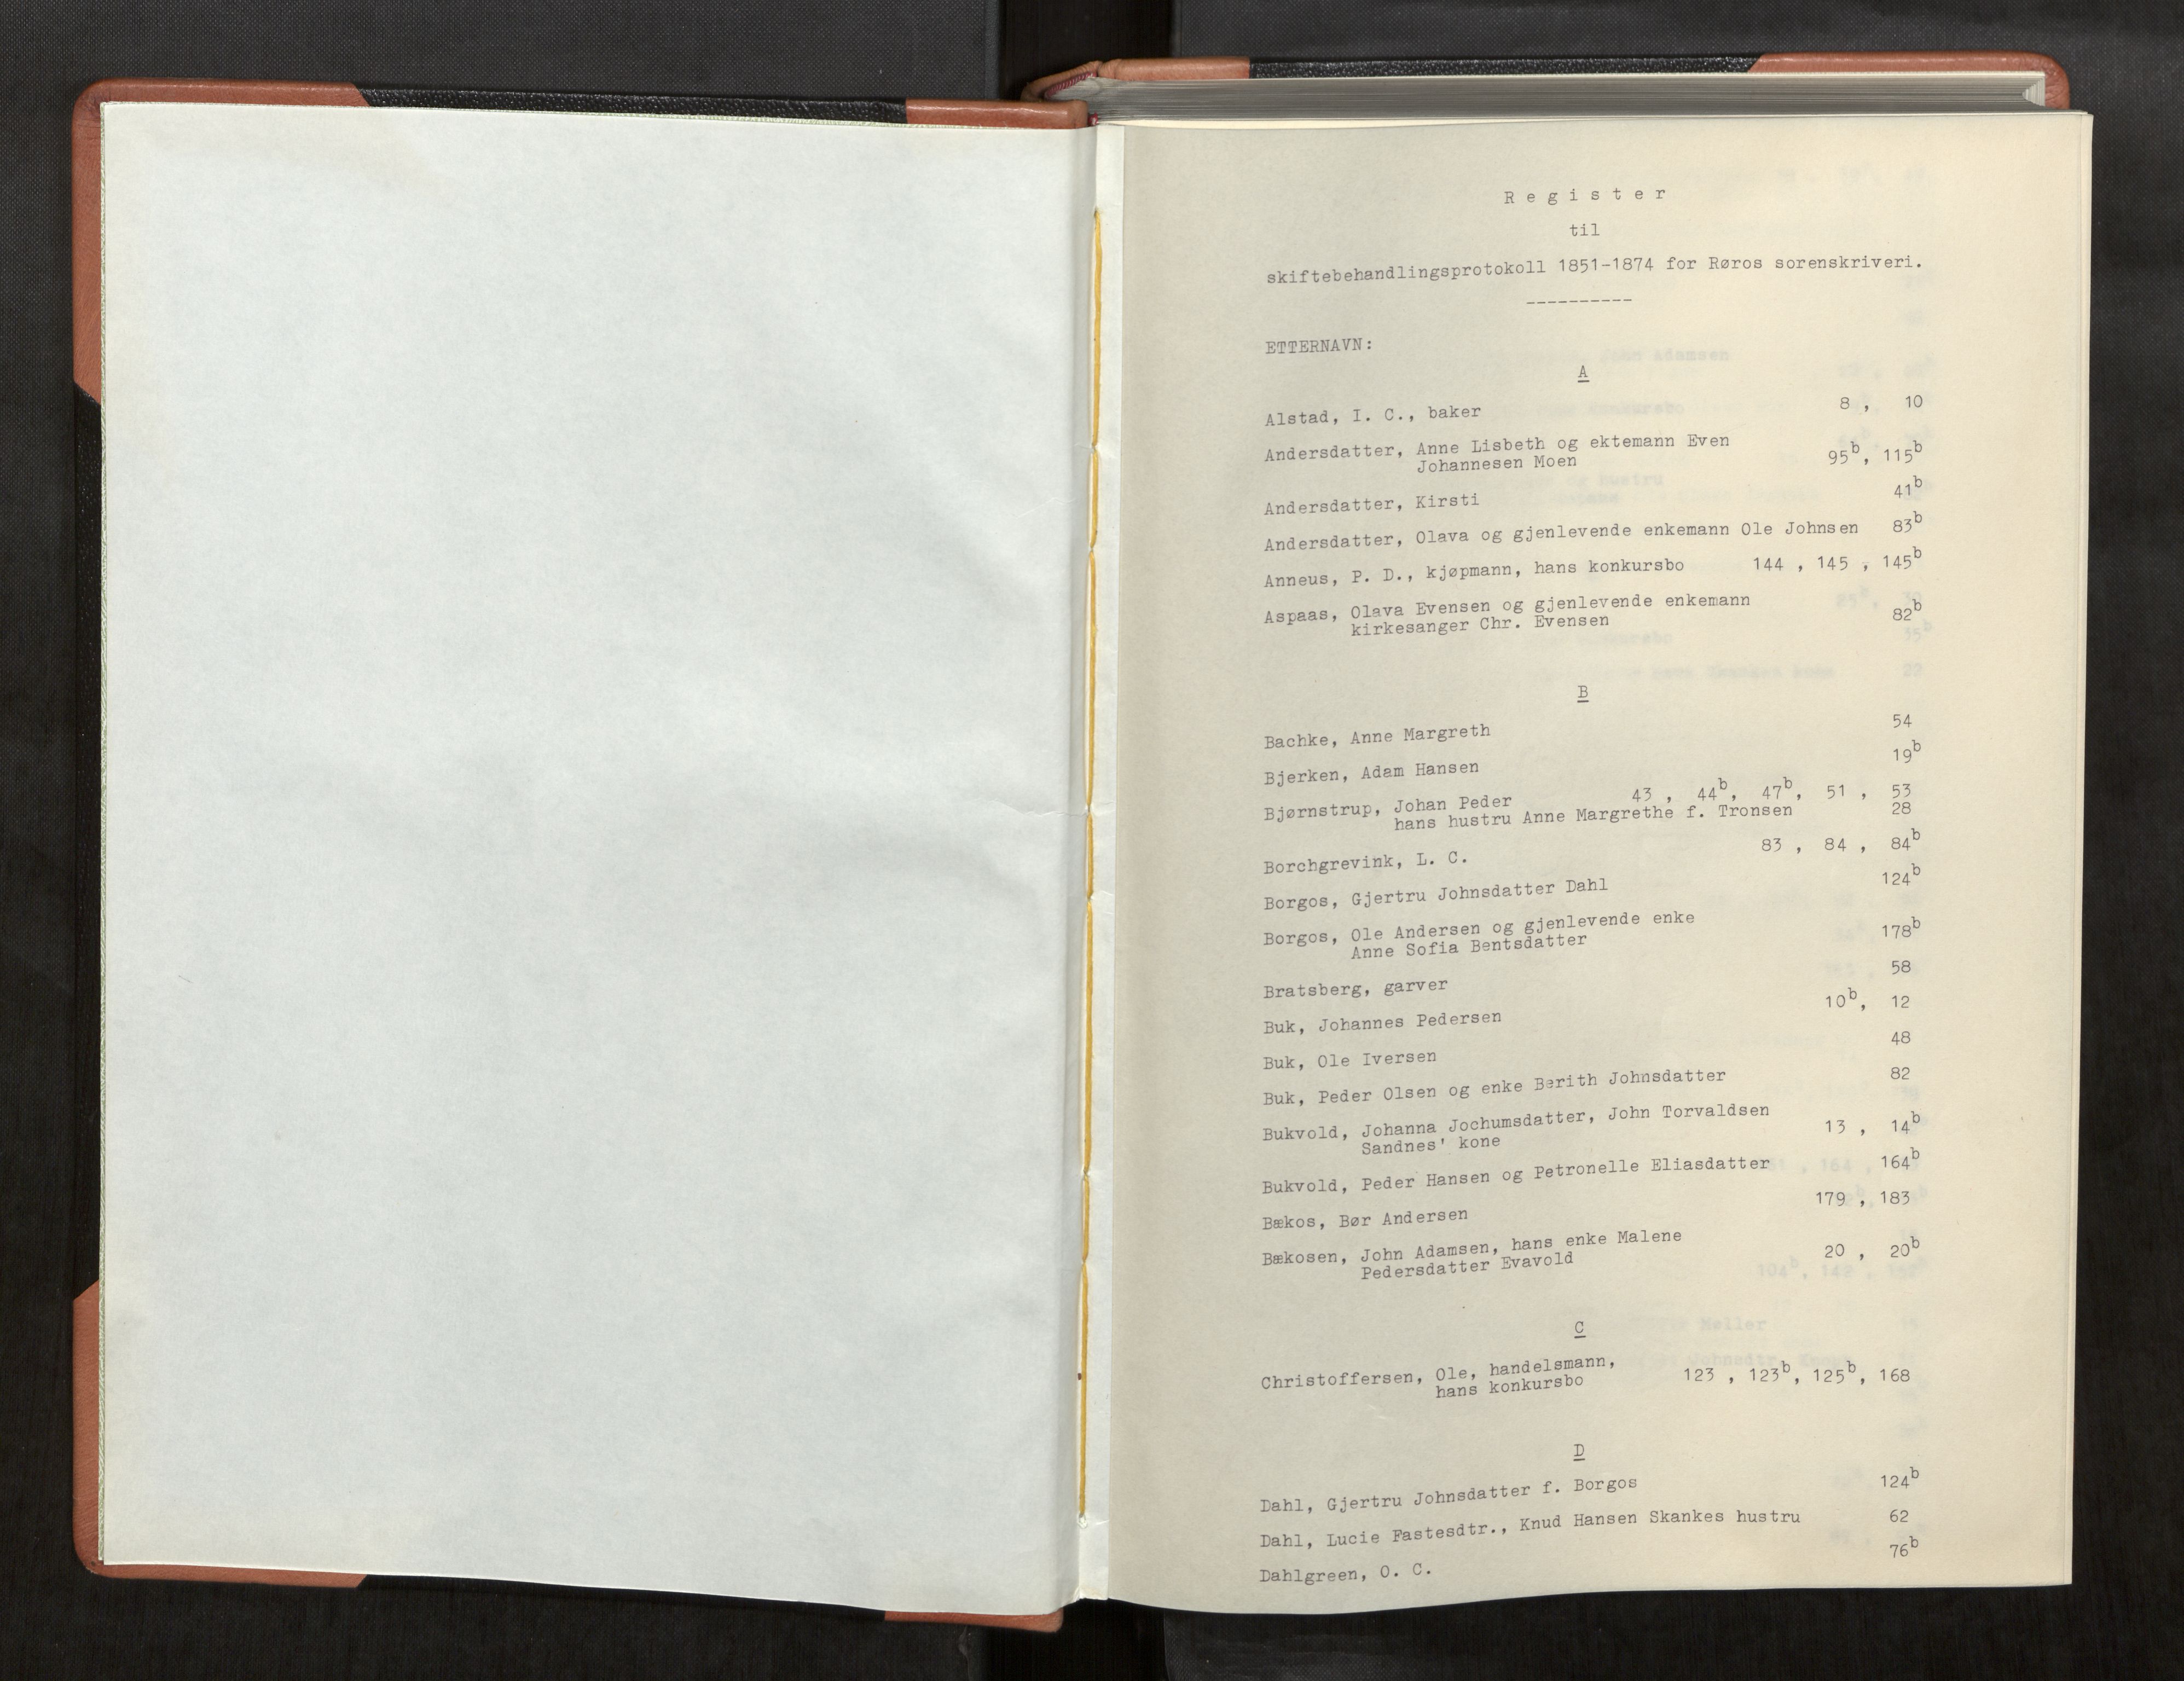 Register
til
skiftebehandlingsprotokoll 1851-1874 for Røros sorenskriveri.
----------
ETTERNAVN:
A
Alstad, I. C., baker 8 , 10
Andersdatter, Anne Lisbeth og ektemann Even
Johannesen Moen 95b, 115b
Andersdatter, Kirsti 41b
Andersdatter, Olava og gjenlevende enkemann Ole Johnsen 83b
Anneus, P. D., kjøpmann, hans konkursbo 144 , 145 , 145b
Aspaas, Olava Evensen og gjenlevende enkemann
kirkesanger Chr. Evensen 82b
B
Bachke, Anne Margreth 54
Bjerken, Adam Hansen 19b
Bjørnstrup, Johan Peder 43 , 44b, 47b, 51 , 53
hans hustru Anne Margrethe f. Tronsen 28
Borchgrevink, L. C. 83 , 84 , 84b
Borgos, Gjertru Johnsdatter Dahl 124b
Borgos, Ole Andersen og gjenlevende enke
Anne Sofia Bentsdatter 178b
Bratsberg, garver 58
Buk, Johannes Pedersen 10b, 12
Buk, Ole Iversen 48
Buk, Peder Olsen og enke Berith Johnsdatter 82
Bukvold, Johanna Jochumsdatter, John Torvaldsen
Sandnes' kone 13 , 14b
Bukvold, Peder Hansen og Petronelle Eliasdatter 164b
Bækos, Bør Andersen 179 , 183
Bækosen, John Adamsen, hans enke Malene
Pedersdatter Evavold 20 , 20b
C
Christoffersen, Ole, handelsmann,
hans konkursbo 123 , 123b, 125b, 168
D
Dahl, Gjertru Johnsdatter f. Borgos 124b
Dahl, Lucie Fastesdtr., Knud Hansen Skankes hustru 62
Dahlgreen, O. C. 76b